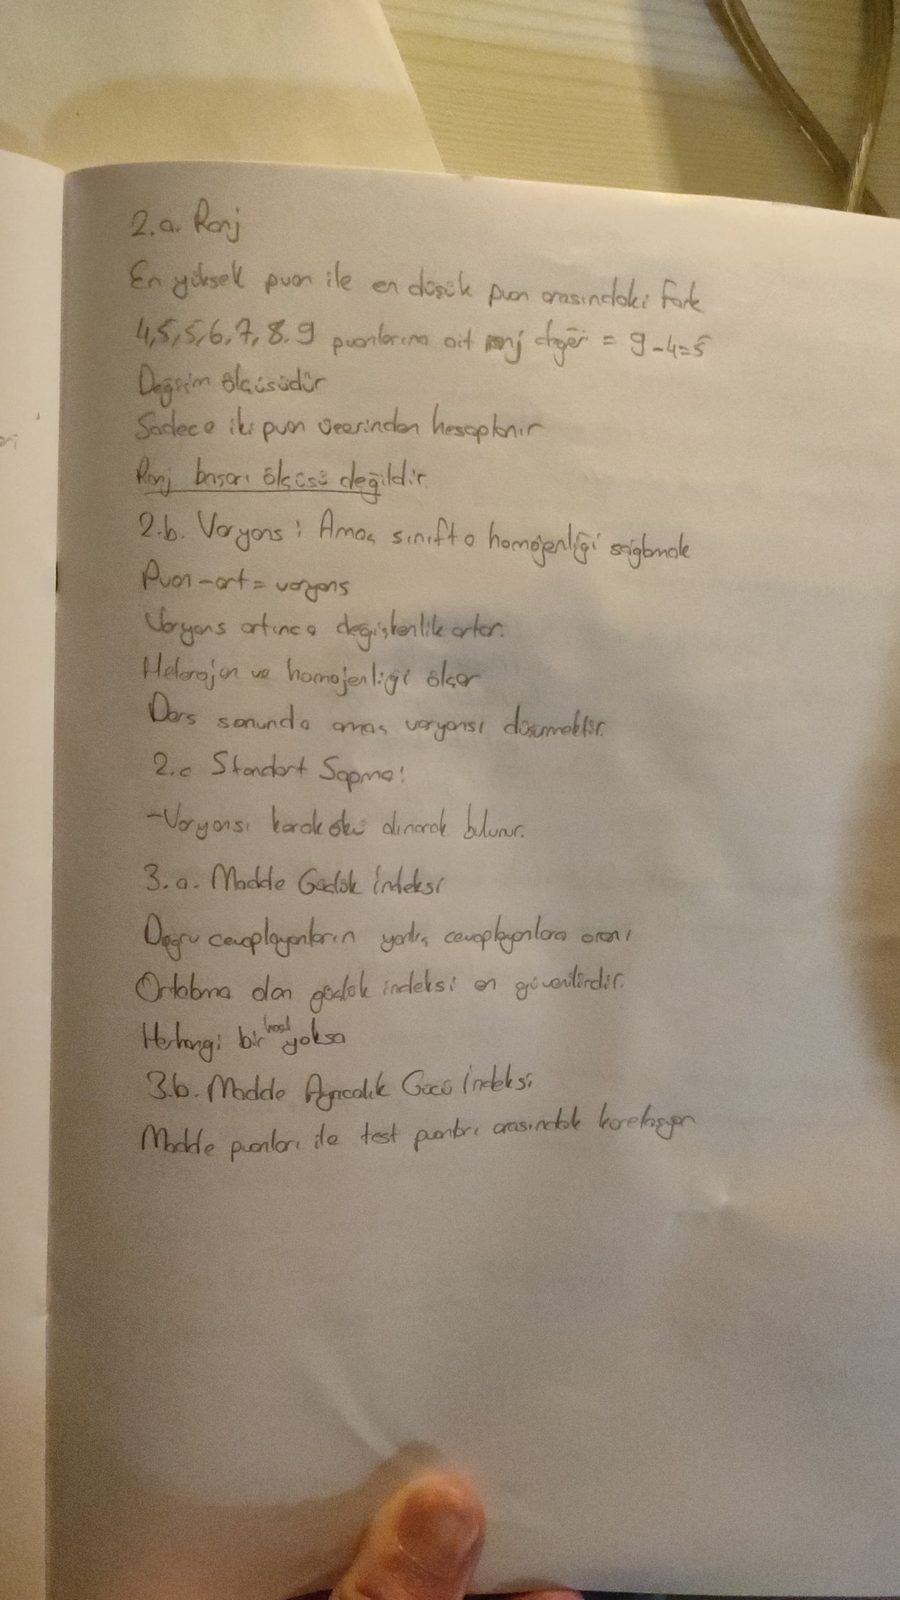 2.a. Ranj
En yüksek puan ile en düşük puan arasındaki fark
4,5,5,6,7,8.9 puanlarına ait ranj değeri = 9-4=5
Değişim ölçüsüdür
Sadece iki puan üzerinden hesaplanır
Ranj başarı ölçüsü değildir.
2.b. Varyans: Amaç sınıfta homojenliği sağlamak
Puan-ort = varyans
Varyans artınca değişkenlik artar.
Heterojen ve homojenliği ölçer
Ders sonunda amaç varyansı düşürmektir.
2.c Standart Sapma:
-Varyansı karekökü alınarak bulunur.
3.a. Madde Güçlük İndeksi
Doğru cevaplayanların yanlış cevaplayanlara oranı
Ortalama olan güçlük indeksi en güvenilirdir.
Herhangi bir yoksa
3.b. Madde Ayrıcalık Gücü İndeksi
Madde puanları ile test puanları arasındaki korelasyon